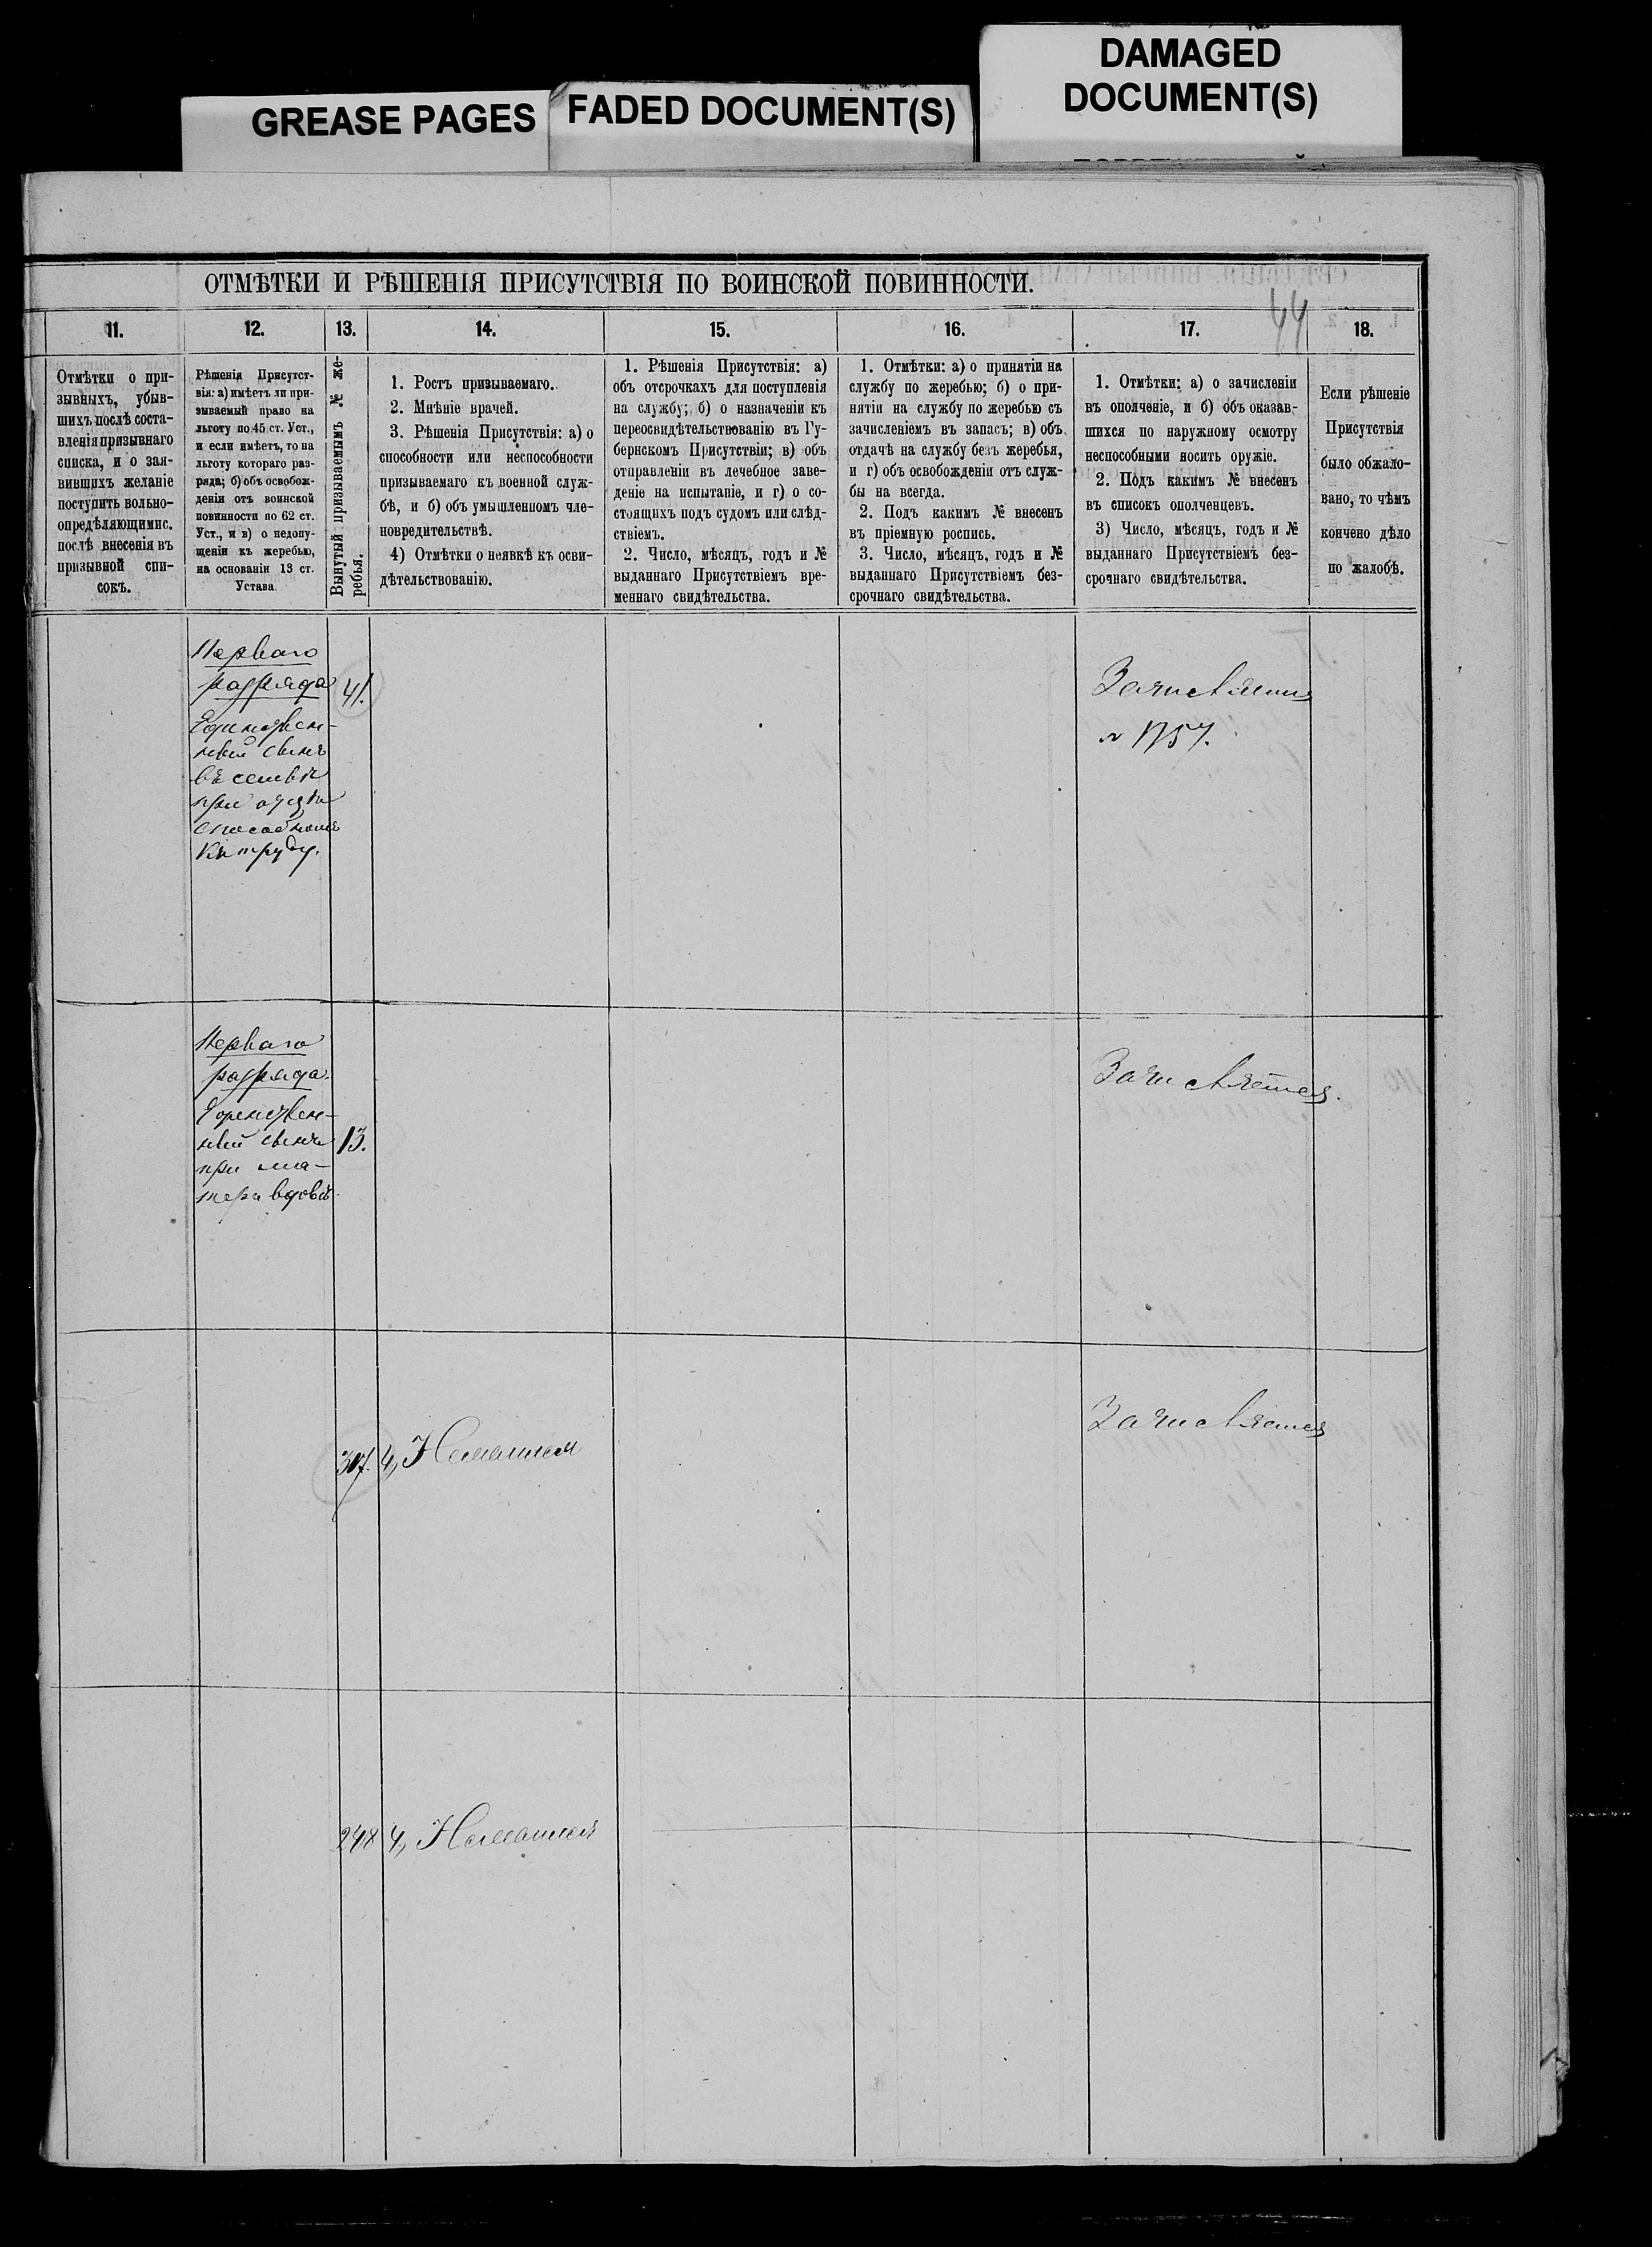 DAMAGED
DOCUMENT(S)
GREASE PAGES
FADED DOCUMENT(S)
ОТМѢТКИ И РѢШЕНІЯ ПРИСУТСТВІЯ ПО ВОИНСКОЙ ПОВИННОСТИ.
44
11.
12.
13.
14.
15.
16.
17.
18.
Отмѣтки о при-
зывныхъ, убыв-
шихъ послѣ соста-
вленія призывнаго
списка, и о зая-
вившихъ желаніе
поступить вольно-
опредѣляющимис.
послѣ внесенія въ
призывной спи-
сокъ.
Рѣшенія Присутст-
вія: а) имѣетъ ли при-
зываемый право на
льготу по 45 ст. Уст.,
и если имѣетъ, то на
льготу котораго раз-
ряда; б) объ освобож-
деніи отъ воинской
повинности по 62 ст.
Уст., и в) о недопу-
щеніи къ жеребью,
на основаніи 13 ст.
Устава.
Вынутый призываемымъ № же-
ребья.
1. Ростъ призываемаго.
2. Мнѣніе врачей.
3. Рѣшенія Присутствія: а) о
способности или неспособности
призываемаго къ военной служ-
бѣ, и б) объ умышленномъ чле-
новредительствѣ.
4) Отмѣтки о неявкѣ къ осви-
дѣтельствованію.
1. Рѣшенія Присутствія: а)
объ отсрочкахъ для поступленія
на службу; б) о назначеніи къ
переосвидѣтельствованію въ Гу-
бернскомъ Присутствіи; в) объ
отправленіи въ лечебное заве-
деніе на испытаніе, и г) о со-
стоящихъ подъ судомъ или слѣд-
ствіемъ.
2. Число, мѣсяцъ, годъ и №
выданнаго Присутствіемъ вре-
меннаго свидѣтельства.
1. Отмѣтки: а) о принятіи на
службу по жеребью; б) о при-
нятіи на службу по жеребью съ
зачисленіемъ въ запасъ; в) объ
отдачѣ на службу безъ жеребья,
и г) объ освобожденіи отъ служ-
бы на всегда.
2. Подъ какимъ № внесенъ
въ пріемную роспись.
3. Число, мѣсяцъ, годъ и №
выданнаго Присутствіемъ без-
срочнаго свидѣтельства.
1. Отмѣтки: а) о зачисленіи
въ ополченіе, и б) объ оказав-
шихся по наружному осмотру
неспособными носить оружіе.
2. Подъ какимъ № внесенъ
въ списокъ ополченцевъ.
3) Число, мѣсяцъ, годъ и №
выданнаго Присутствіемъ без-
срочнаго свидѣтельства.
Если рѣшеніе
Присутствія
было обжало-
вано, то чѣмъ
кончено дѣло
по жалобѣ.
Перваго
разряда
Единствен-
ный сынъ
въ семьѣ
при отцѣ
способномъ
къ труду.
41.
Зачисляется
№ 1757.
Перваго
разряда.
Единствен-
ный сынъ
при ма-
тери вдовѣ.
13.
Зачисляется.
307. 4, Неявился
Зачисляется
248 4, Неявился